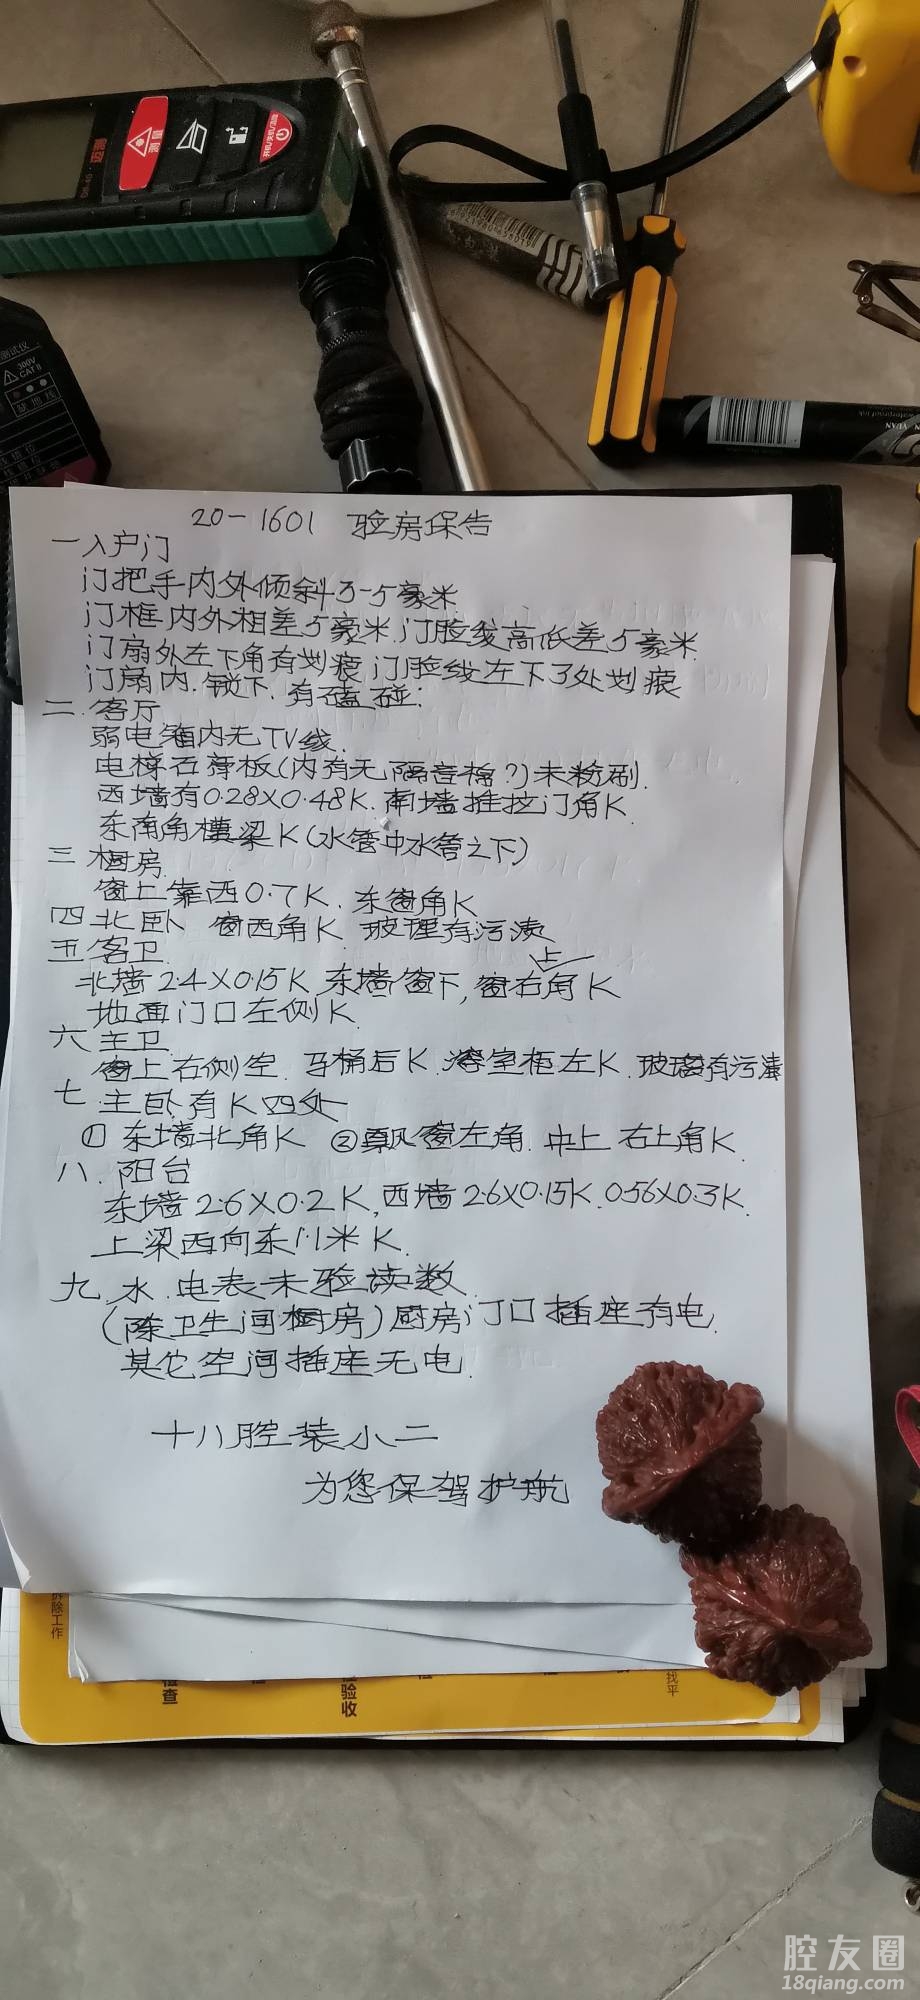 测量
开机/关机/清除
迈测
测试仪
300V
CAT II
20-1601 验房保告
一 入户门
门把手内外倾斜3-5毫米
门框内外相差5毫米.门脸线高低差5毫米.
门扇外左下角有划痕 门脸线左下3处划痕
门扇内.锁下.有磕碰.
二.客厅
弱电箱内无TV线.
电梯石膏板(内有无隔音棉?)未粉刷.
西墙有0.28X0.48K.南墙推拉门角K.
东南角横梁K(水管中水管之下)
三 橱房.
窗上靠西0.7K.东窗角K.
四 北卧 窗西角K 玻理有污渍
五 客卫.
上
北墙2.4X0.15K 东墙窗下,窗右角K
地面门口左侧K.
六 主卫
窗上右侧空.马桶后K.浴室柜左K.玻璃有污渍
七.主卧有K四处
① 东墙北角K ②飘窗左角.中上.右上角K.
八.阳台
东墙2.6X0.2K,西墙2.6X0.15K.0.56X0.3K.
上梁西向东1.1米K.
九.水.电表未验读数
(除卫生间橱房)厨房门口插座有电.
其它空间插座无电.
十八腔装小二
为您保驾护航
拆除工作
检查
验收
找平
腔友圈
18qiang.com